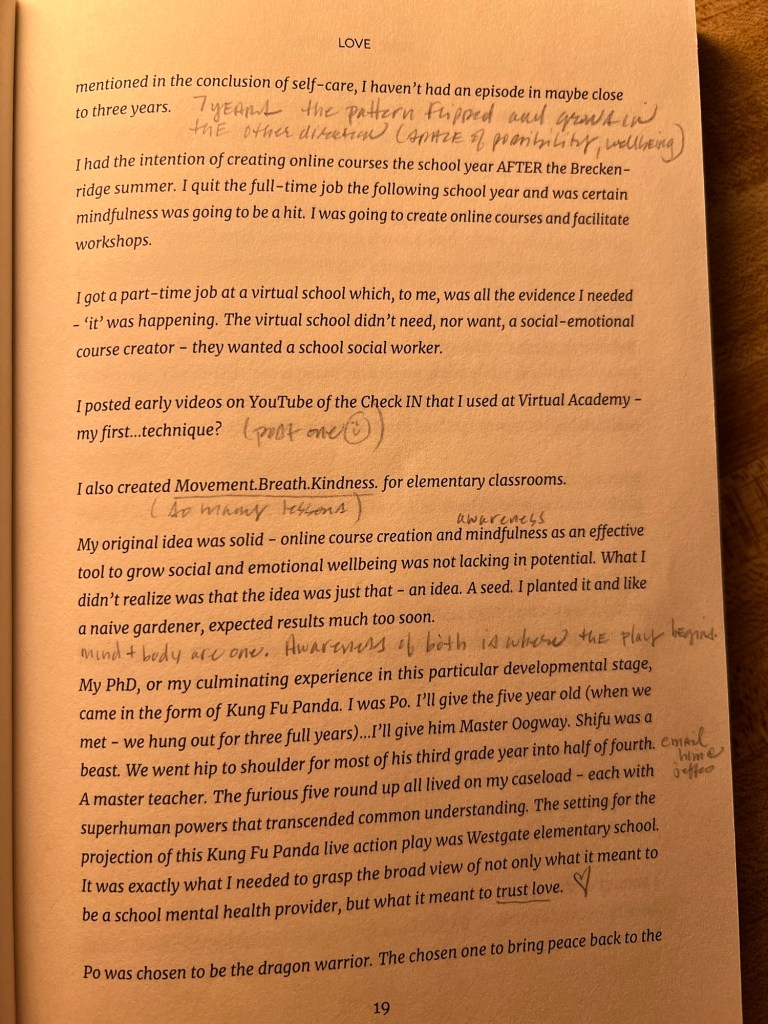 LOVE
mentioned in the conclusion of self-care, I haven't had an episode in maybe close
to three years. 7 years the pattern flipped and grows in
the other direction (space of possibility, wellbeing)
I had the intention of creating online courses the school year AFTER the Brecken-
ridge summer. I quit the full-time job the following school year and was certain
mindfulness was going to be a hit. I was going to create online courses and facilitate
workshops.
I got a part-time job at a virtual school which, to me, was all the evidence I needed
– 'it' was happening. The virtual school didn't need, nor want, a social-emotional
course creator – they wanted a school social worker.
I posted early videos on YouTube of the Check IN that I used at Virtual Academy –
my first...technique? (post one)
I also created Movement.Breath.Kindness. for elementary classrooms.
(so many lessons)
awareness
My original idea was solid – online course creation and mindfulness as an effective
tool to grow social and emotional wellbeing was not lacking in potential. What I
didn't realize was that the idea was just that – an idea. A seed. I planted it and like
a naive gardener, expected results much too soon.
mind + body are one. Awareness of both is where the play begins.
My PhD, or my culminating experience in this particular developmental stage,
came in the form of Kung Fu Panda. I was Po. I'll give the five year old (when we
met – we hung out for three full years)...I'll give him Master Oogway. Shifu was a
beast. We went hip to shoulder for most of his third grade year into half of fourth.
email
A master teacher. The furious five round up all lived on my caseload – each with
superhuman powers that transcended common understanding. The setting for the
projection of this Kung Fu Panda live action play was Westgate elementary school.
It was exactly what I needed to grasp the broad view of not only what it meant to
be a school mental health provider, but what it meant to trust love.
Po was chosen to be the dragon warrior. The chosen one to bring peace back to the
19